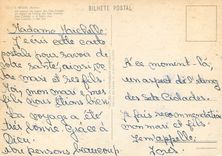 BILHETE POSTAL
Madame Michelle.
J'écris cette carte
postale pour savoir de
votre santé, ainsi de
le mari et ses fils.
Moi, mon mari et mes fils
nous étions bien.
Le voyage a été
très bonne. Grâce à
Dieu.
pensons beaucoup.
A ce moment là,
un aspect de l'étang
des Sete Cidades.
Je fais recommendations
mon mari et fils.